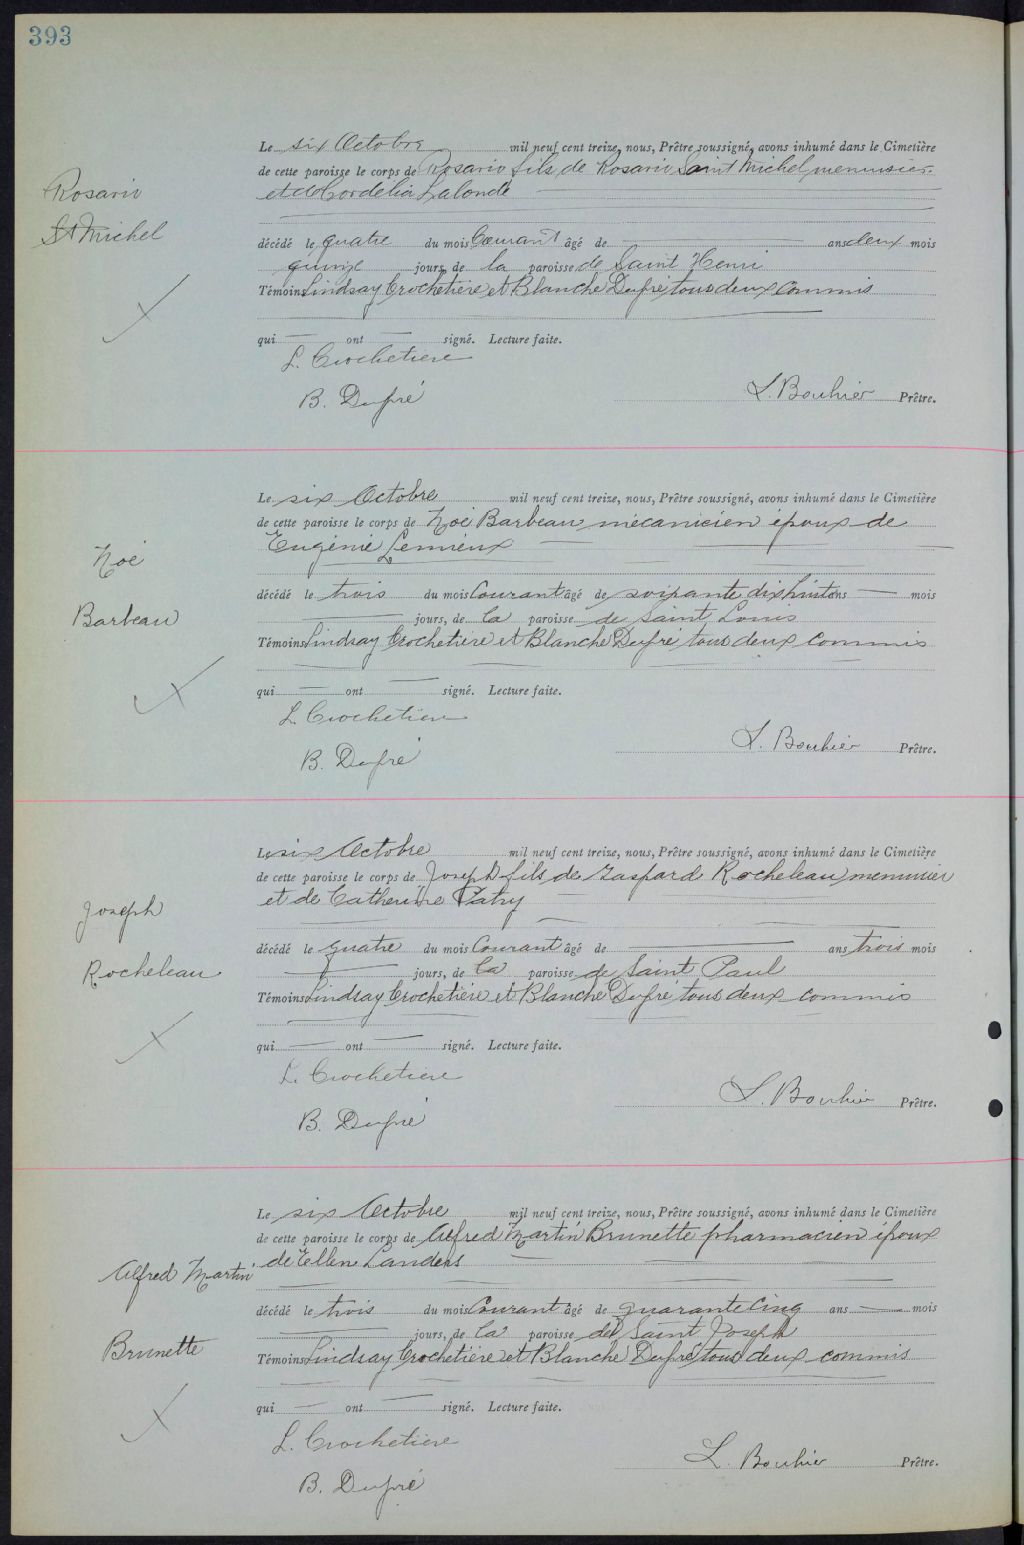 393
Rosario
St Michel
Le six Octobre mil neuf cent treize, nous, Prêtre soussigné, avons inhumé dans le Cimetière
de cette paroisse le corps de Rosario fils de Rosario Saint Michel, menuisier
et de Cordelia Lalonde
décédé le quatre du mois Courant âgé de — ans deux mois
quinze jours, de la paroisse de Saint Henri
Témoins Lindsay Crochetière et Blanche Dufré tous deux commis
qui — ont — signé. Lecture faite.
L. Crochetiere
B. Dufré
L. Bouhier Prêtre.
Noé
Barbeau
Le six Octobre mil neuf cent treize, nous, Prêtre soussigné, avons inhumé dans le Cimetière
de cette paroisse le corps de Noé Barbeau mécanicien époux de
Eugénie Lemieux
décédé le trois du mois Courant âgé de soixante dix huit ans — mois
— jours, de la paroisse de Saint Louis
Témoins Lindsay Crochetière et Blanche Dufré tous deux commis
qui — ont — signé. Lecture faite.
L. Crochetiere
B. Dufré
L. Bouhier Prêtre.
Joseph
Rocheleau
Le six Octobre mil neuf cent treize, nous, Prêtre soussigné, avons inhumé dans le Cimetière
de cette paroisse le corps de Joseph fils de Gaspard Rocheleau, menuisier
et de Catherine Patry
décédé le quatre du mois Courant âgé de — ans trois mois
— jours, de la paroisse de Saint Paul
Témoins Lindsay Crochetière et Blanche Dufré tous deux commis
qui — ont — signé. Lecture faite.
L. Crochetiere
B. Dufré
L. Bouhier Prêtre.
Alfred Martin
Brunette
Le six Octobre mil neuf cent treize, nous, Prêtre soussigné, avons inhumé dans le Cimetière
de cette paroisse le corps de Alfred Martin Brunette pharmacien époux
de Ellen Landers
décédé le trois du mois Courant âgé de quarante cinq ans — mois
— jours, de la paroisse de Saint Joseph
Témoins Lindsay Crochetière et Blanche Dufré tous deux commis
qui — ont — signé. Lecture faite.
L. Crochetiere
B. Dufré
L. Bouhier Prêtre.